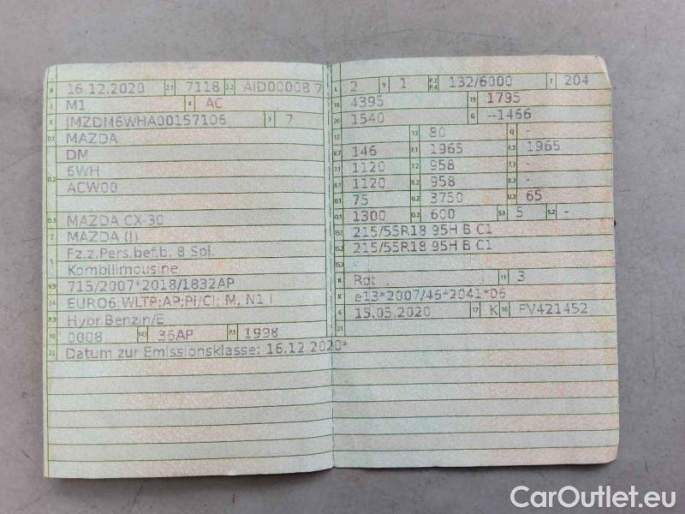 16.12.2020 7118 AID00008 7
M1 AC
JMZDM6WHA00157106 7
MAZDA
DM
6WH
ACW00
MAZDA CX-30
MAZDA (J)
Fz.z.Pers.bef.b. 8 Spl.
Kombilimousine
715/2007*2018/1832AP
EURO6;WLTP;AP;PI/CI; M, N1 I
Hybr.Benzin/E
0008 36AP 1998
Datum zur Emissionsklasse: 16.12.2020*
2 1 132/6000 204
4395 1795
1540 --1466
80 -
146 1965 1965
1120 958 -
1120 958 -
75 3750 65
1300 600 5 -
215/55R18 95H B C1
215/55R18 95H B C1
-
Rot 3
e13*2007/46*2041*06
15.05.2020 K FV421452
CarOutlet.eu